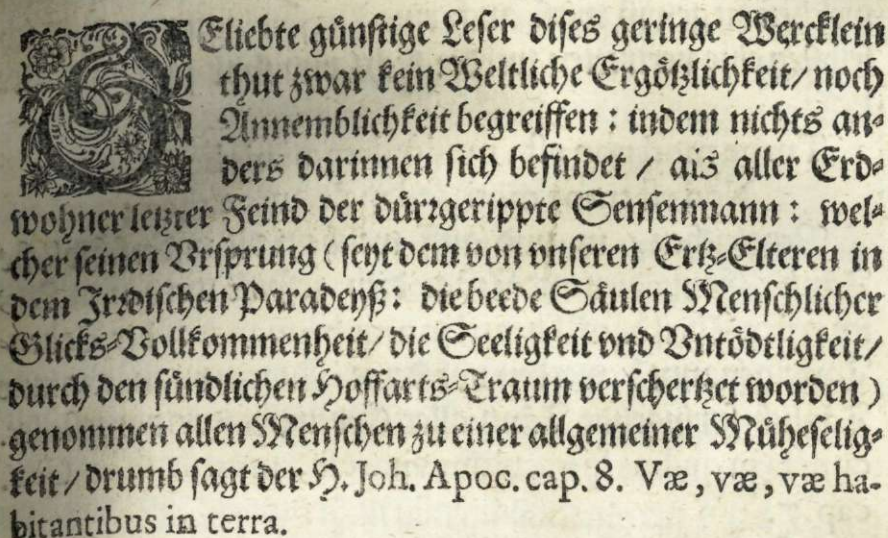 GEliebte günstige Leser dises geringe Wercklein
thut zwar kein Weltliche Ergötzlichkeit/ noch
Annemblichkeit begreiffen : indem nichts an-
ders darinnen sich befindet / ais aller Erd-
wohner letzter Feind der dürrgerippte Sensenmann : wel-
cher seinen Vrsprung ( seyt dem von vnseren Ertz-Elteren in
dem Jrrdischen Paradeyß : die beede Säulen Menschlicher
Glicks-Vollkommenheit/ die Seeligkeit vnd Vntödtligkeit/
durch den sündlichen Hoffarts-Traum verschertzet worden )
genommen allen Menschen zu einer allgemeiner Müheselig-
keit / drumb sagt der H. Joh. Apoc. cap. 8. Væ, væ, væ ha-
bitantibus in terra.